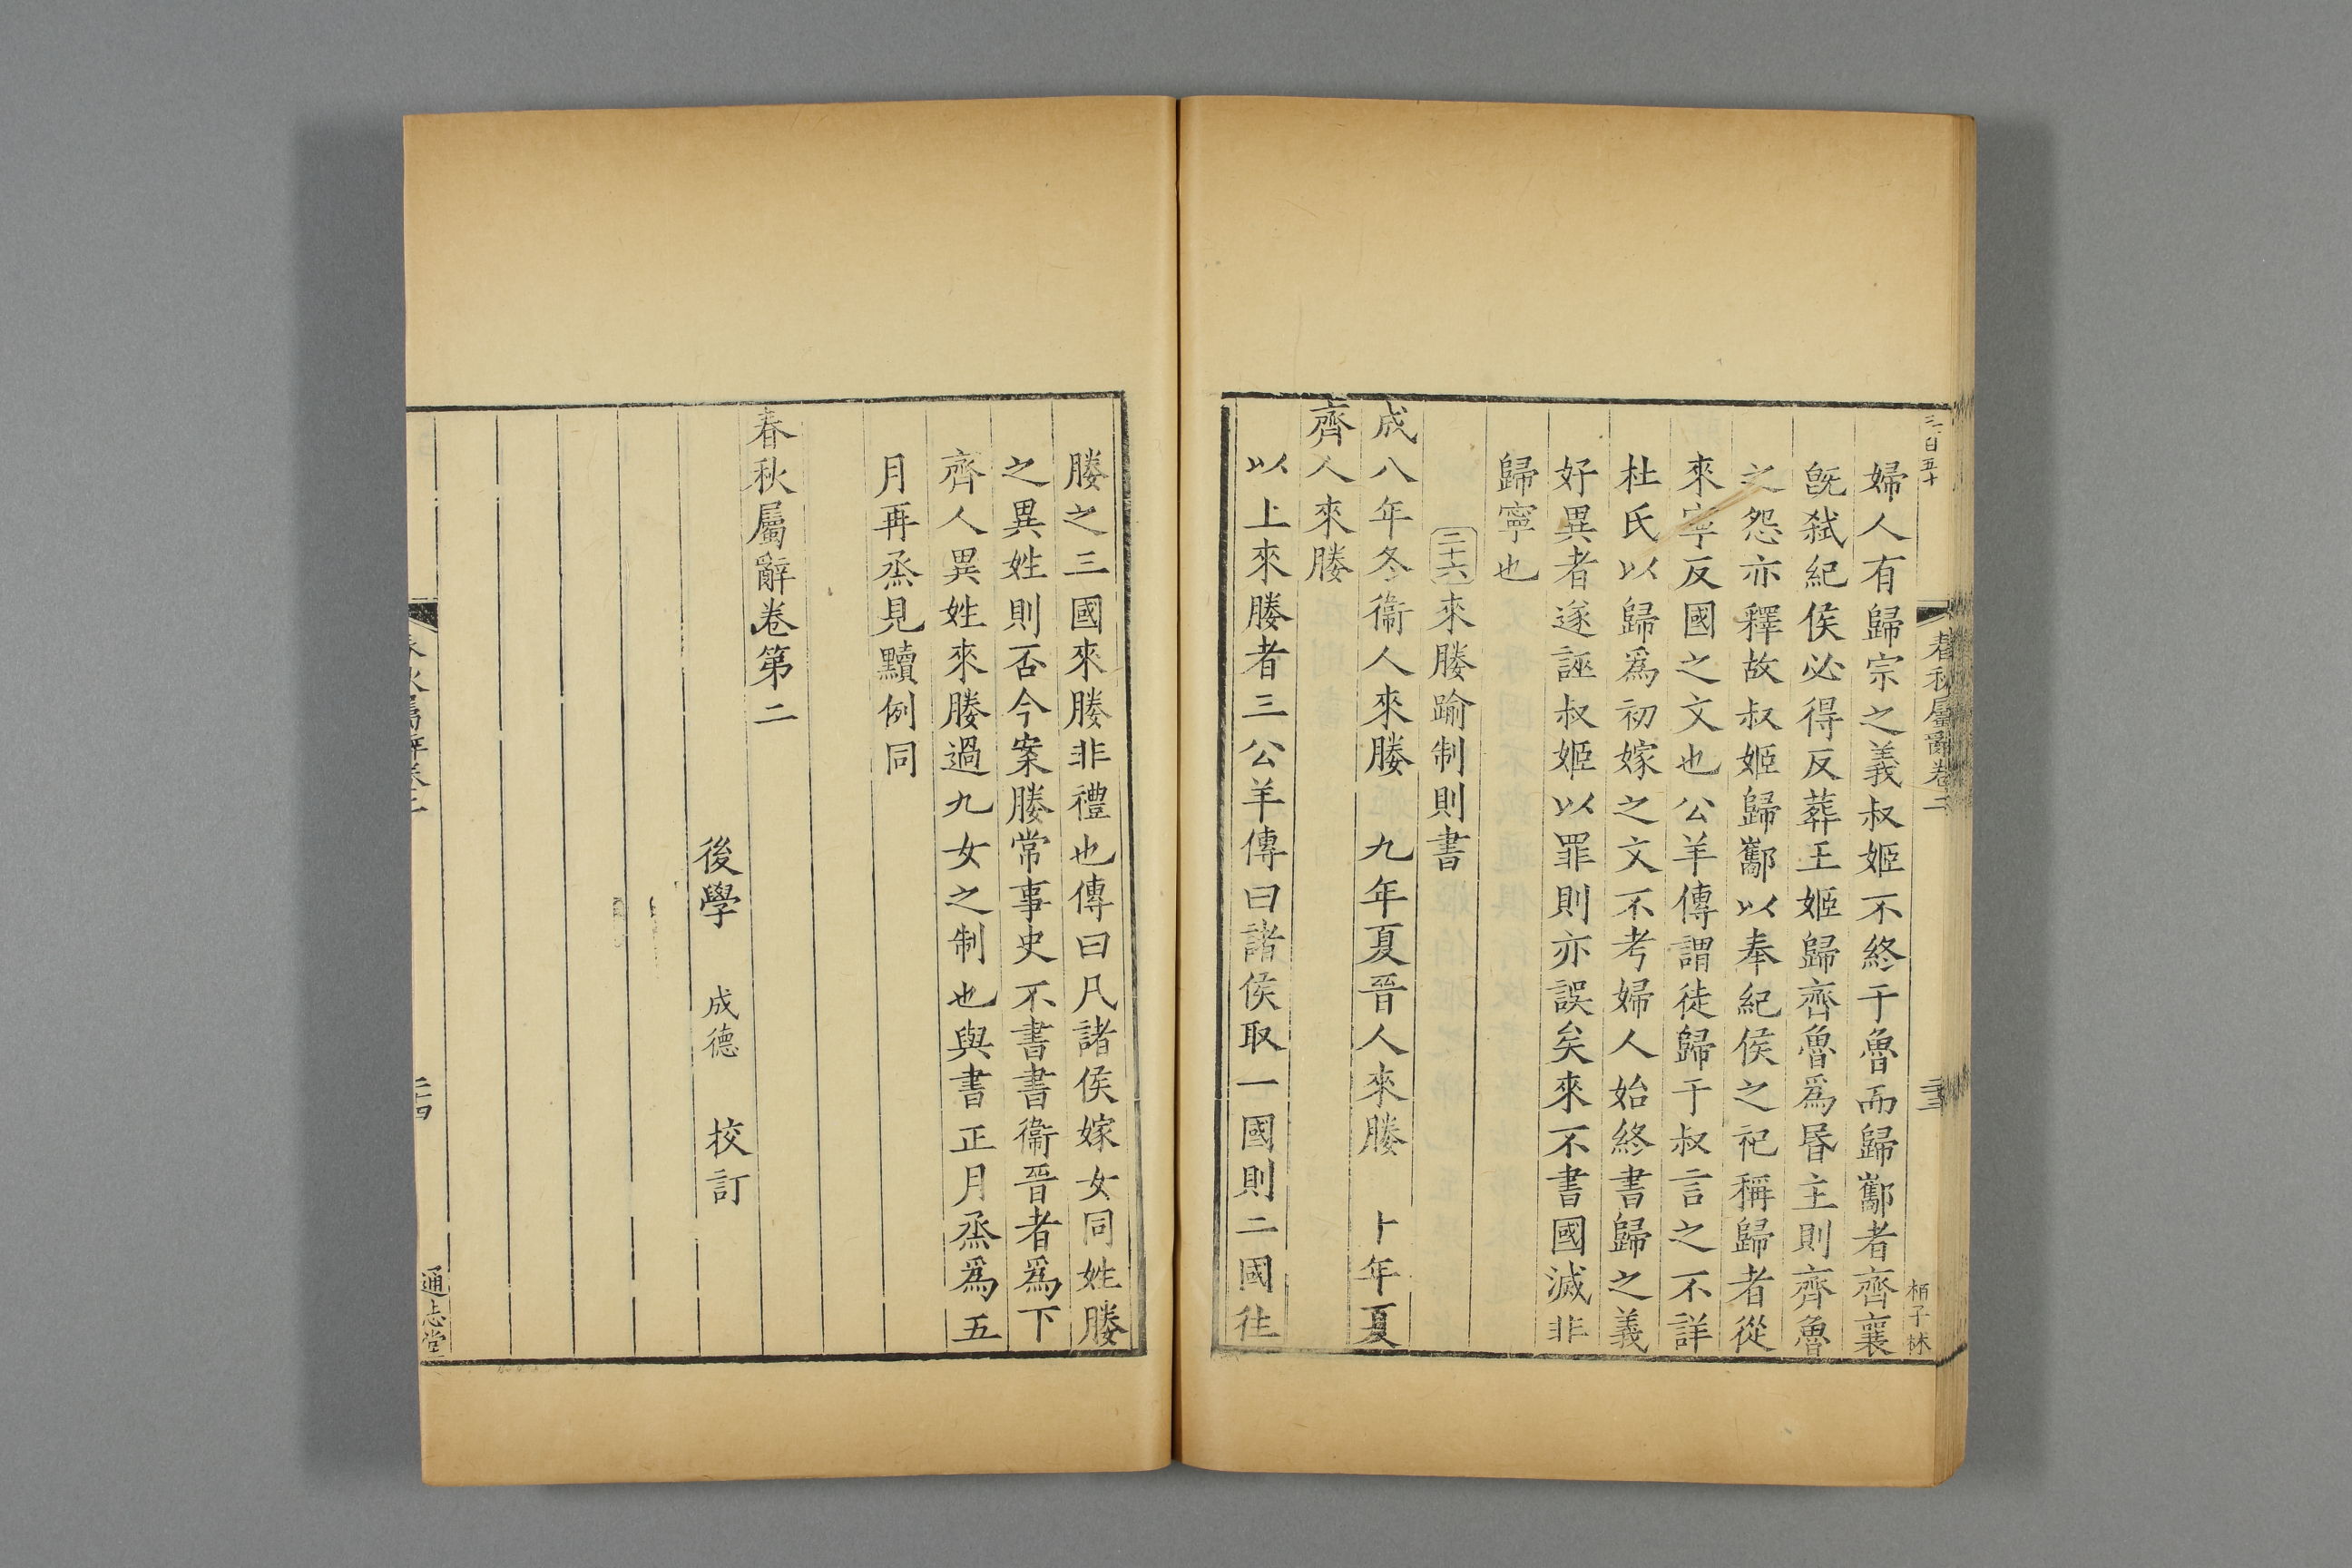 三百五十
春秋屬辭卷二
三三
栢子林
婦人有歸宗之義叔姬不終于魯而歸酅者齊襄
旣弑紀侯必得反葬王姬歸齊魯爲昏主則齊魯
之怨亦釋故叔姬歸酅以奉紀侯之祀稱歸者從
來寧反國之文也公羊傳謂徒歸于叔言之不詳
杜氏以歸爲初嫁之文不考婦人始終書歸之義
好異者遂誣叔姬以罪則亦誤矣來不書國滅非
歸寧也
二十六來媵踰制則書
成八年冬衞人來媵 九年夏晉人來媵 十年夏
齊人來媵
以上來媵者三公羊傳曰諸侯取一國則二國往
媵之三國來媵非禮也傳曰凡諸侯嫁女同姓媵
之異姓則否今案媵常事史不書書衞晉者爲下
齊人異姓來媵過九女之制也與書正月烝爲五
月再烝見黷例同
春秋屬辭卷第二
後學 成德 校訂
春秋屬辭卷二
三四
通志堂